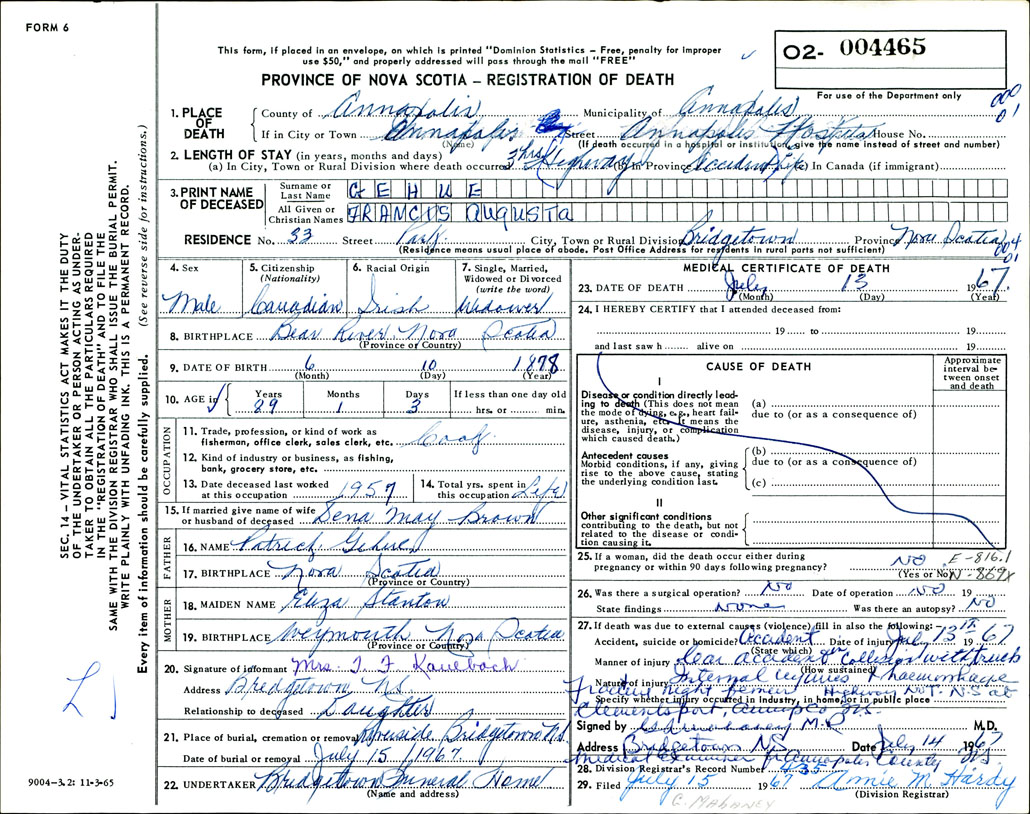 FORM 6
This form, if placed in an envelope, on which is printed "Dominion Statistics – Free, penalty for improper
use $50," and properly addressed will pass through the mail "FREE"
PROVINCE OF NOVA SCOTIA – REGISTRATION OF DEATH
O2- 004465
For use of the Department only
1. PLACE OF DEATH
County of Annapolis Municipality of Annapolis
If in City or Town Annapolis Street Annapolis Hospital House No.
(Name) (If death occurred in a hospital or institution, give the name instead of street and number)
2. LENGTH OF STAY (in years, months and days)
(a) In City, Town or Rural Division where death occurred 3 hrs Highway (b) In Province Accident Life (c) In Canada (if immigrant)
3. PRINT NAME OF DECEASED
Surname or Last Name GEHUE
All Given or Christian Names FRANCIS AUGUSTA
RESIDENCE No. 33 Street Park City, Town or Rural Division Bridgetown Province Nova Scotia
(Residence means usual place of abode. Post Office Address for residents in rural parts not sufficient)
004
01
4. Sex Male
5. Citizenship (Nationality) Canadian
6. Racial Origin Irish
7. Single, Married, Widowed or Divorced (write the word) Widower
8. BIRTHPLACE Bear River Nova Scotia
(Province or Country)
9. DATE OF BIRTH 6 10 1878
(Month) (Day) (Year)
10. AGE in Years 89 Months 1 Days 3 If less than one day old hrs. or min.
OCCUPATION
11. Trade, profession, or kind of work as
fisherman, office clerk, sales clerk, etc.
12. Kind of industry or business, as fishing,
bank, grocery store, etc.
13. Date deceased last worked at this occupation 1957
14. Total yrs. spent in this occupation Life
15. If married give name of wife
or husband of deceased Sena May Brown
FATHER
16. NAME Patrick Gehue
17. BIRTHPLACE Nova Scotia
(Province or Country)
MOTHER
18. MAIDEN NAME Eliza Stanton
19. BIRTHPLACE Weymouth Nova Scotia
(Province or Country)
20. Signature of informant Mrs. T F Kaulback
Address Bridgetown N.S.
Relationship to deceased Daughter
21. Place of burial, cremation or removal Riverside Bridgetown N.S.
Date of burial or removal July 15 1967.
22. UNDERTAKER Bridgetown Funeral Home
(Name and address)
MEDICAL CERTIFICATE OF DEATH
23. DATE OF DEATH July 13 1967
(Month) (Day) (Year)
24. I HEREBY CERTIFY that I attended deceased from:
19 to 19
and last saw h alive on 19
CAUSE OF DEATH
Approximate interval between onset and death
I
Disease or condition directly leading to death (This does not mean
the mode of dying, e.g., heart failure, asthenia, etc. It means the
disease, injury, or complication which caused death.)
(a)
due to (or as a consequence of)
Antecedent causes
Morbid conditions, if any, giving
rise to the above cause, stating
the underlying condition last.
(b)
due to (or as a consequence of)
(c)
II
Other significant conditions
contributing to the death, but not
related to the disease or condition causing it.
25. If a woman, did the death occur either during
pregnancy or within 90 days following pregnancy? NO
(Yes or No)
E-816.1
N-869X
26. Was there a surgical operation? No Date of operation NO 19
State findings None Was there an autopsy? NO
27. If death was due to external causes (violence) fill in also the following:
Accident, suicide or homicide? Accident Date of injury July 13th 1967
(State which)
Manner of injury Car accident Collision with truck
(How sustained)
Nature of injury Internal injuries & haemorrhage
Fracture right femur Highway No 1. N.S at
Specify whether injury occurred in industry, in home, or in public place
Clementsport, Annap. Co. N.S.
Signed by M.D. M.D.
Address Bridgetown NS Date July 14 1967
Medical Examiner for Annapolis County NS
28. Division Registrar's Record Number 435
29. Filed July 15 1967 Annie M. Hardy
(Division Registrar)
C. MAHANEY
SEC. 14 – VITAL STATISTICS ACT MAKES IT THE DUTY
OF THE UNDERTAKER OR PERSON ACTING AS UNDER-
TAKER TO OBTAIN ALL THE PARTICULARS REQUIRED
IN THE "REGISTRATION OF DEATH" AND TO FILE THE
SAME WITH THE DIVISION REGISTRAR WHO SHALL ISSUE THE BURIAL PERMIT.
WRITE PLAINLY WITH UNFADING INK. THIS IS A PERMANENT RECORD.
Every item of information should be carefully supplied. (See reverse side for instructions.)
9004-3.2: 11-3-65